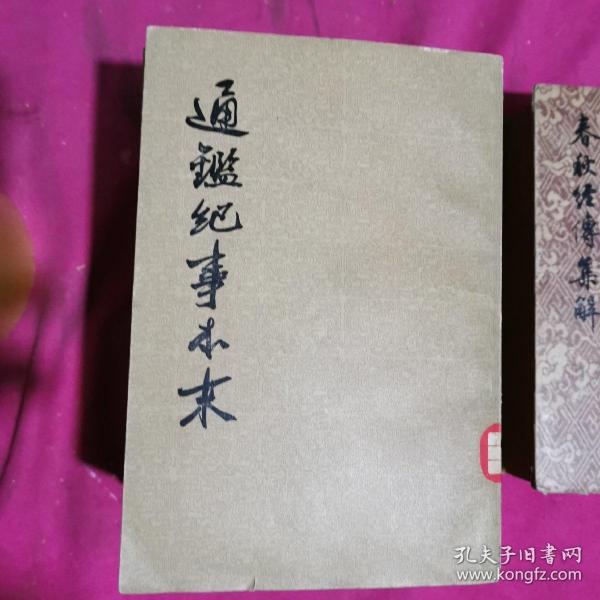 通鑑紀事本末
春秋经傳集解
孔夫子旧书网
www.kongfz.com